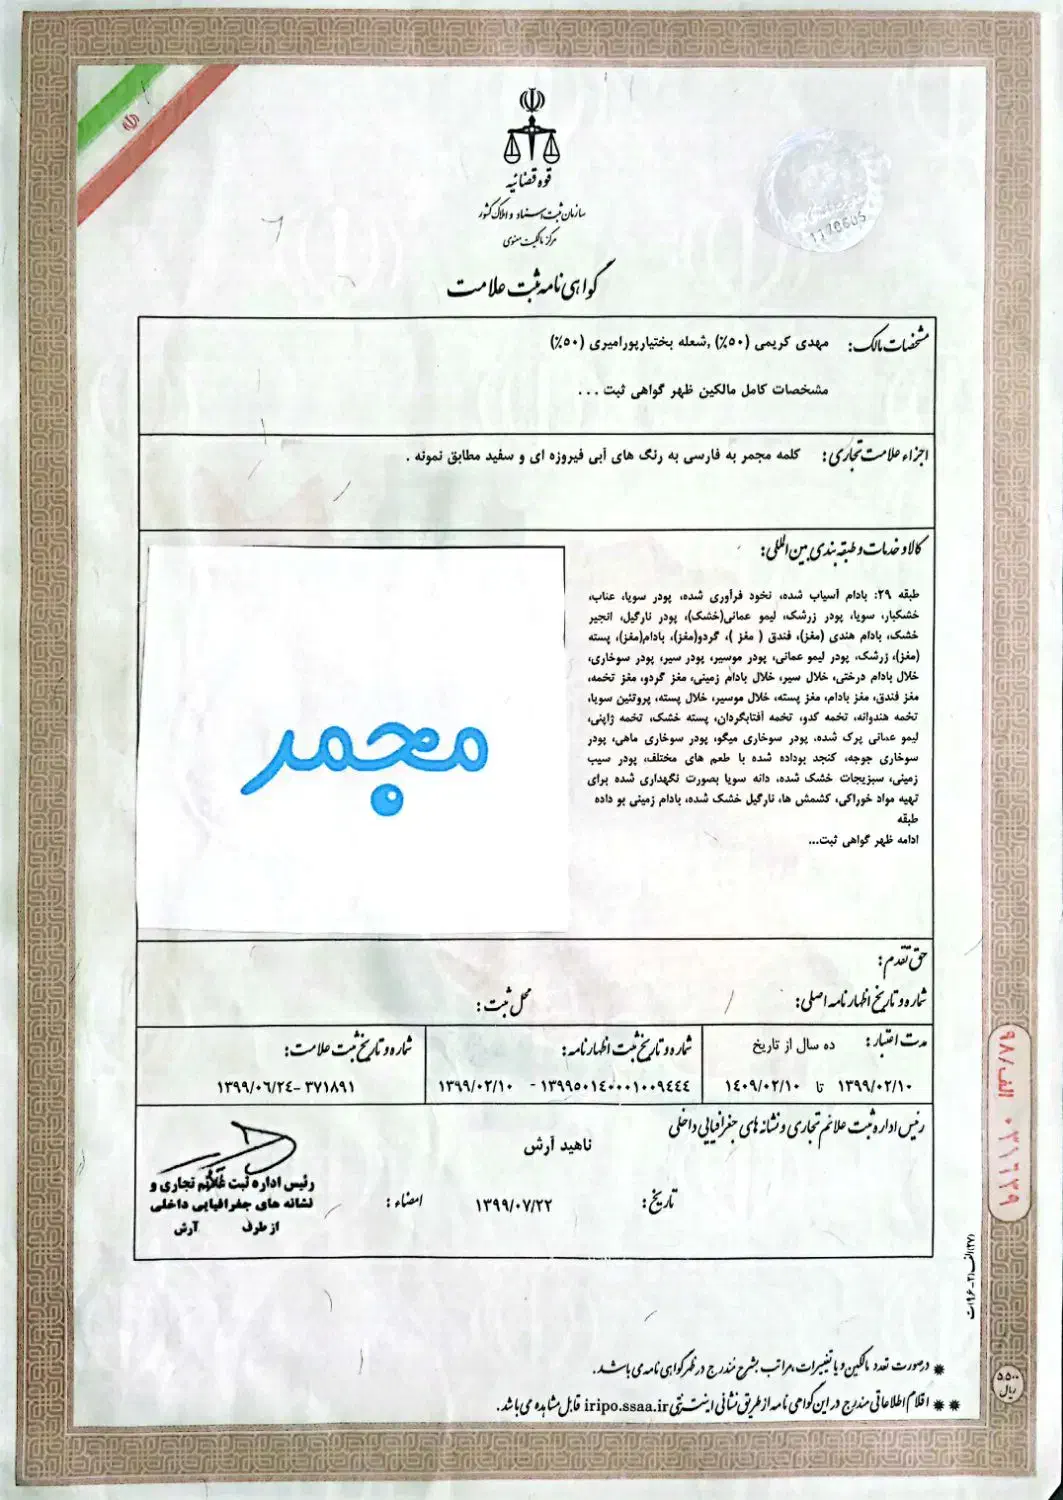 قوه قضائیه
سازمان ثبت اسناد و املاک کشور
مرکز مالکیت معنوی
1170605
گواهی نامه ثبت علامت
مشخصات مالک: مهدی کریمی (۵۰٪) ,شعله بختیارپورامیری (۵۰٪)
مشخصات کامل مالکین ظهر گواهی ثبت ...
اجزاء علامت تجاری: کلمه مجمر به فارسی به رنگ های آبی فیروزه ای و سفید مطابق نمونه .
کالا و خدمات و طبقه بندی بین المللی:
طبقه ۲۹: بادام آسیاب شده، نخود فرآوری شده، پودر سویا، عناب،
خشکبار، سویا، پودر زرشک، لیمو عمانی(خشک)، پودر نارگیل، انجیر
خشک، بادام هندی (مغز)، فندق ( مغز )، گردو(مغز)، بادام(مغز)، پسته
(مغز)، زرشک، پودر لیمو عمانی، پودر موسیر، پودر سیر، پودر سوخاری،
خلال بادام درختی، خلال سیر، خلال بادام زمینی، مغز گردو، مغز تخمه،
مغز فندق، مغز بادام، مغز پسته، خلال موسیر، خلال پسته، پروتئین سویا،
تخمه هندوانه، تخمه کدو، تخمه آفتابگردان، پسته خشک، تخمه ژاپنی،
لیمو عمانی پرک شده، پودر سوخاری میگو، پودر سوخاری ماهی، پودر
سوخاری جوجه، کنجد بوداده شده با طعم های مختلف، پودر سیب
زمینی، سبزیجات خشک شده، دانه سویا بصورت نگهداری شده برای
تهیه مواد خوراکی، کشمش ها، نارگیل خشک شده، بادام زمینی بو داده
طبقه
ادامه ظهر گواهی ثبت...
مجمر
حق تقدم:
شماره و تاریخ اظهارنامه اصلی: محل ثبت:
مدت اعتبار: ده سال از تاریخ
۱۳۹۹/۰۲/۱۰ تا ۱۴۰۹/۰۲/۱۰
شماره و تاریخ ثبت اظهارنامه:
۱۳۹۹۵۰۱۴۰۰۰۱۰۰۹۴۴۴ - ۱۳۹۹/۰۲/۱۰
شماره و تاریخ ثبت علامت:
۳۷۱۸۹۱ - ۱۳۹۹/۰۶/۲۴
رئیس اداره ثبت علائم تجاری و نشانه های جغرافیایی داخلی
ناهید آرش
تاریخ: ۱۳۹۹/۰۷/۲۲
امضاء:
رئیس اداره ثبت علائم تجاری و
نشانه های جغرافیایی داخلی
از طرف آرش
الف/۹۸ ۰۲۱۲۲۹
۵۵۰۰
ریال
✸ درصورت تعدد مالکین و یا تغییرات، مراتب بشرح مندرج در ظهر گواهی نامه می باشد.
✸ ✸ اقلام اطلاعاتی مندرج در این گواهی نامه از طریق نشانی اینترنتی iripo.ssaa.ir قابل مشاهده می باشد.